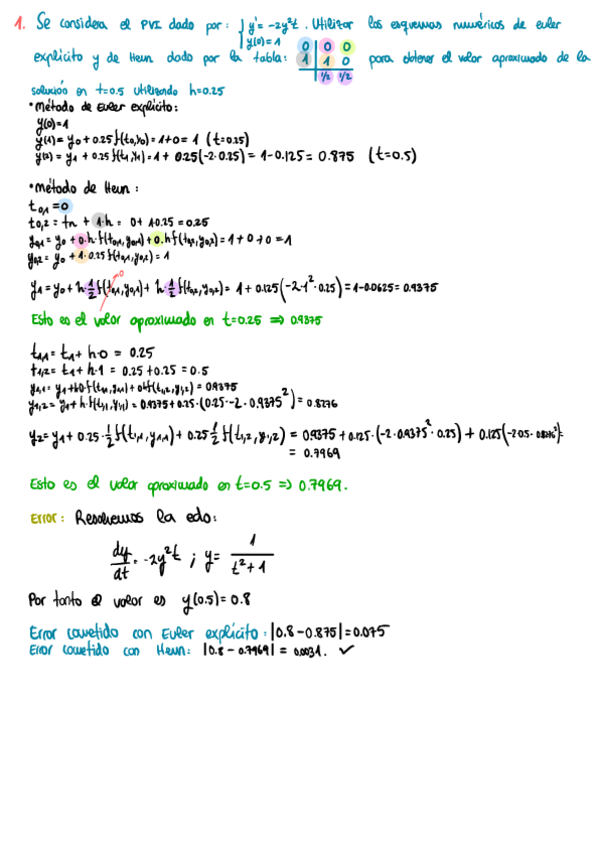 1. Se considera el PVI dado por: { y' = -2y²t . Utilizar los esquemas numéricos de euler
y(0)=1
explícito y de Heun dado por la tabla: 0 | 0 0 para obtener el valor aproximado de la
1 | 1 0
1/2 1/2
solución en t=0.5 utilizando h=0.25
• Método de Euler explícito:
y(0)=1
y(1)= y0 + 0.25 f(t0,y0) = 1+0 = 1 (t=0.25)
y(2)= y1 + 0.25 f(t1,y1) = 1 + 0.25(-2·0.25) = 1-0.125 = 0.875 (t=0.5)
• Método de Heun:
t0,1 = 0
t0,2 = tn + 1·h = 0+ 1·0.25 = 0.25
y0,1 = y0 + 0·h·f(t0,1, y0,1) + 0·h f(t0,2, y0,2) = 1+0+0 = 1
y0,2 = y0 + 1·0.25 f(t0,1, y0,1) = 1
y1 = y0 + h·1/2 f(t0,1, y0,1) + h·1/2 f(t0,2, y0,2) = 1 + 0.125(-2·1²·0.25) = 1-0.0625 = 0.9375
0
Esto es el valor aproximado en t=0.25 ⇒ 0.9375
t1,1 = t1 + h·0 = 0.25
t1,2 = t1 + h·1 = 0.25 + 0.25 = 0.5
y1,1 = y1 + h0·f(t1,1, y1,1) + 0hf(t1,2, y1,2) = 0.9375
y1,2 = y1 + h·f(t1,1, y1,1) = 0.9375 + 0.25·(0.25·-2·0.9375²) = 0.8276
y2 = y1 + 0.25·1/2 f(t1,1, y1,1) + 0.25 1/2 f(t1,2, y1,2) = 0.9375 + 0.125·(-2·0.9375²·0.25) + 0.125(-2·0.5·0.8276²)=
= 0.7969
Esto es el valor aproximado en t=0.5 ⇒ 0.7969.
Error: Resolvemos la edo:
dy/dt = -2y²t ; y = 1/(t²+1)
Por tanto el valor es y(0.5)=0.8
Error cometido con Euler explícito: |0.8-0.875| = 0.075
Error cometido con Heun: |0.8-0.7969| = 0.0031. ✓